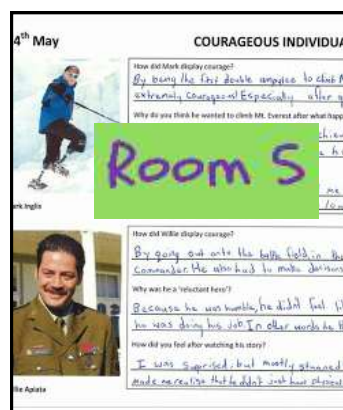 4th May
COURAGEOUS INDIVIDUA
How did Mark display courage?
By being the first double amputee to climb M
extremely courageous! Especially after
Why do you think he wanted to climb Mt. Everest after what happ
Room 5
me
ark Inglis
How did Willie display courage?
By going out onto the battle field in the
Commander. He also had to make decisions
Why was he a 'reluctant hero'?
Because he was humble, he didnt feel
he was doing his job. In other words he
How did you feel after watching his story?
I was suprised, but mostly stunned
made me realise that he didn't just have physical
llie Apiata